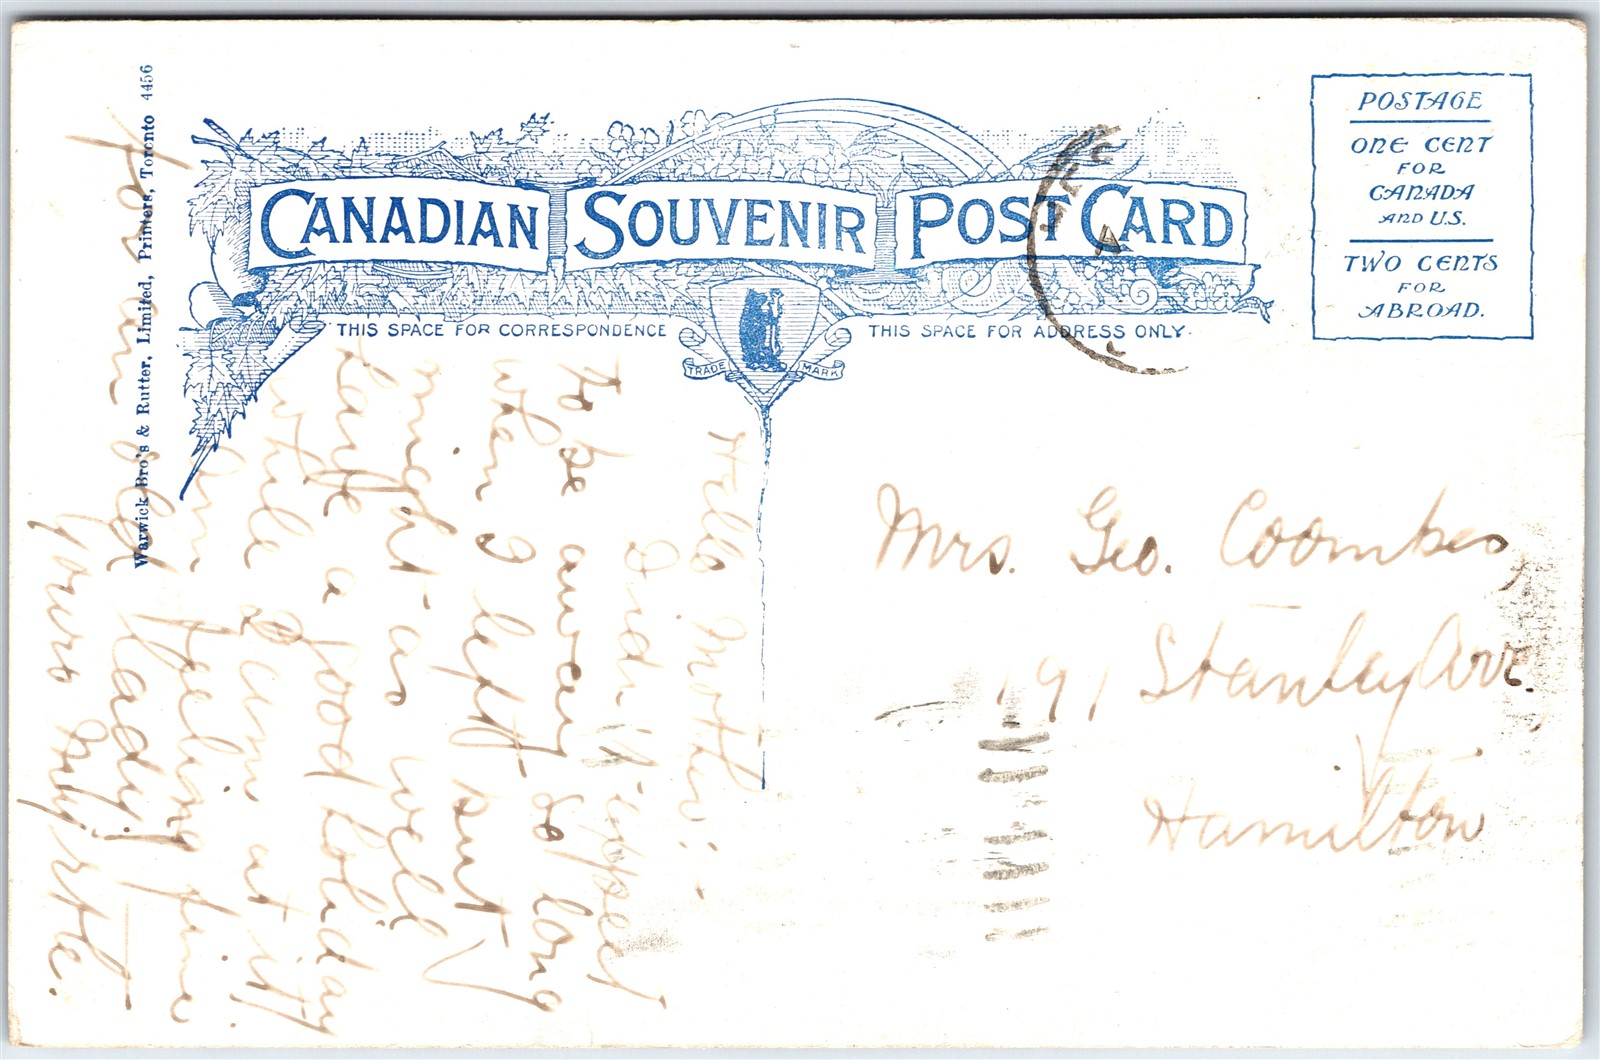 CANADIAN SOUVENIR POST CARD
THIS SPACE FOR CORRESPONDENCE
THIS SPACE FOR ADDRESS ONLY.
TRADE MARK
POSTAGE
ONE CENT
FOR
CANADA
AND U.S.
TWO CENTS
FOR
ABROAD.
Warwick Bro's & Rutter, Limited, Printers, Toronto 4456
Hello Mother: -
Didn't expect
to be away so long
when I left but
might as well
have a good holiday
while I am at it
Am feeling fine
you an old lady!
yours
Mrs. Geo. Coombes,
191 Stanley Ave.
Hamilton